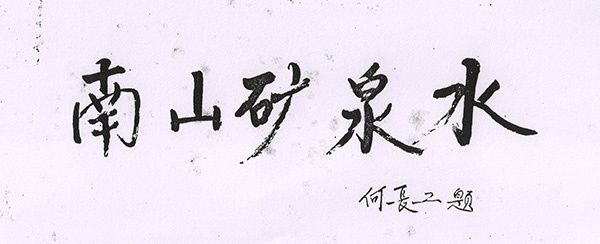 南山矿泉水
何长工题